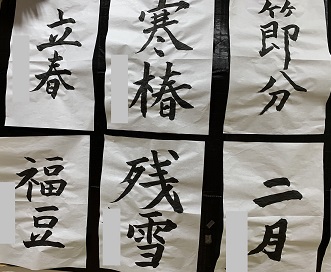 節分
寒椿
立春
二月
残雪
福豆